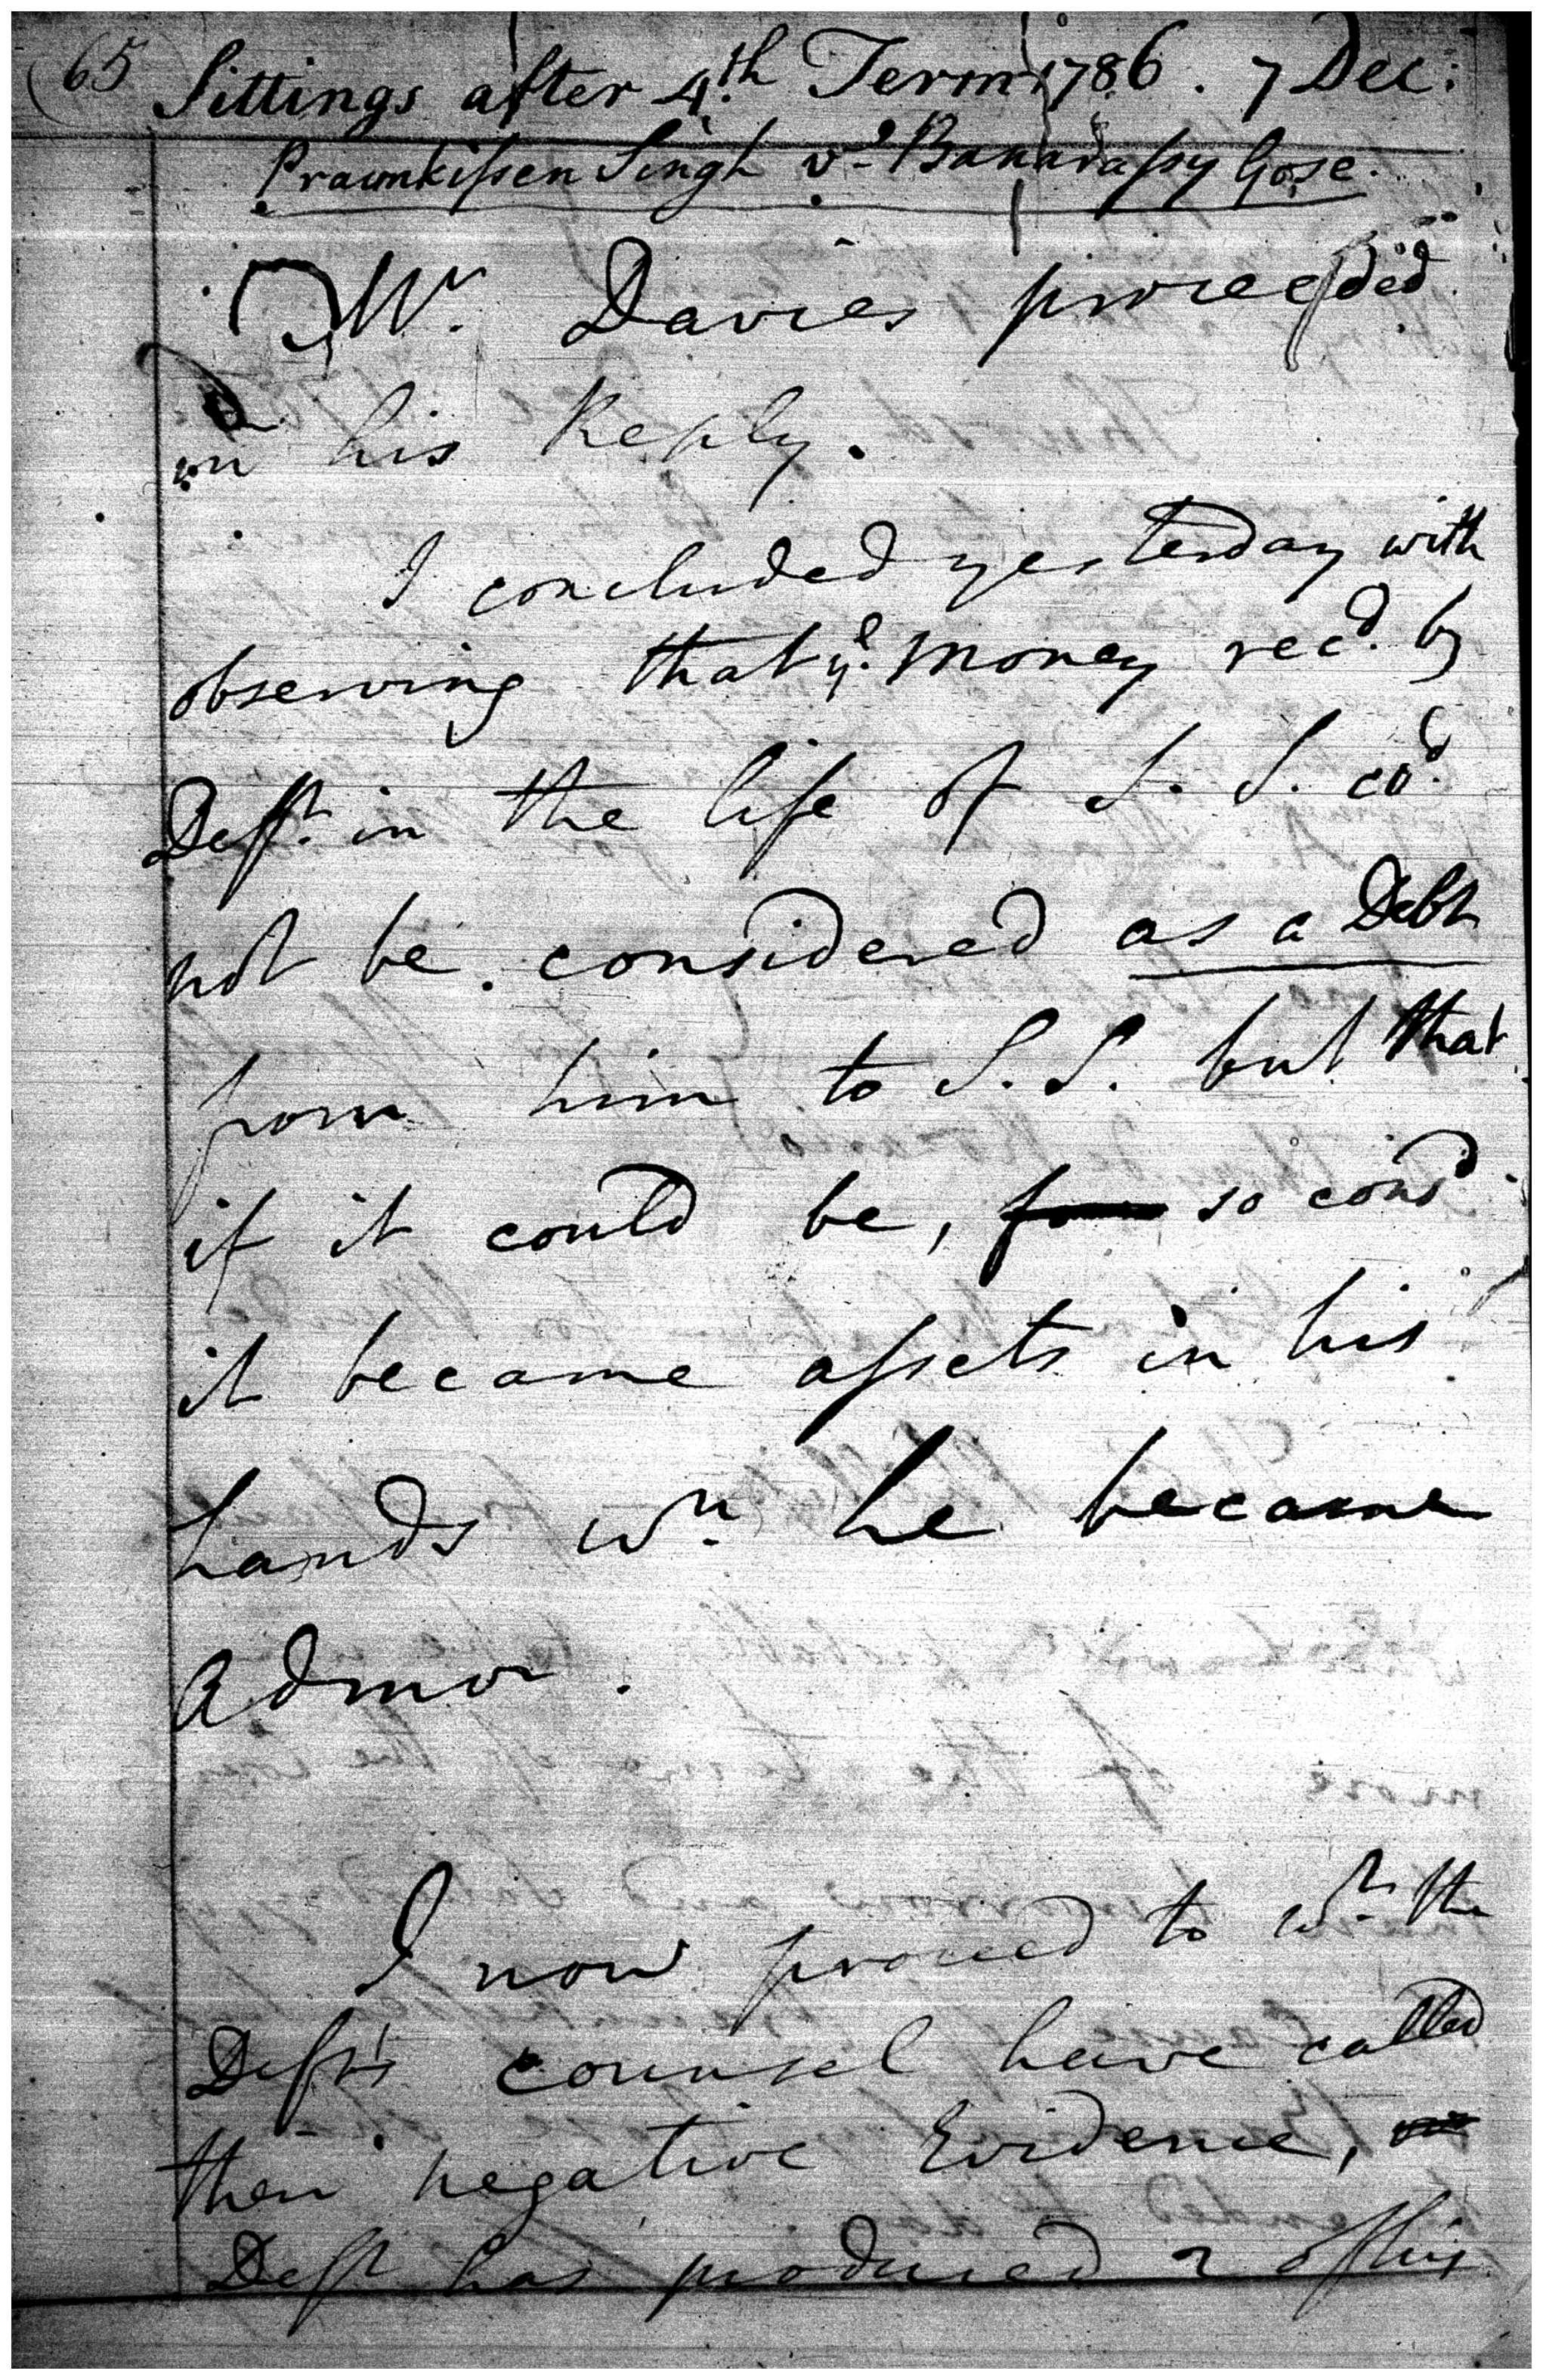 65 Sittings after 4.th Term 1786. 7 Dec:
Prawnkissen Singh v.s Banarassy Gose.
Mr. Davies proceeded
in his Reply.
I concluded yesterday with
observing that y.e money rec.d by
Deft. in the life of S. S. co.d
not be considered as a Debt
from him to S. S. but that
if it could be, so cons.d
it became assets in his
hands w.n he became
Admor.
I now proceed to w.t the
Deft's counsel have called
their negative Evidence,
Deft has produced 2 of his